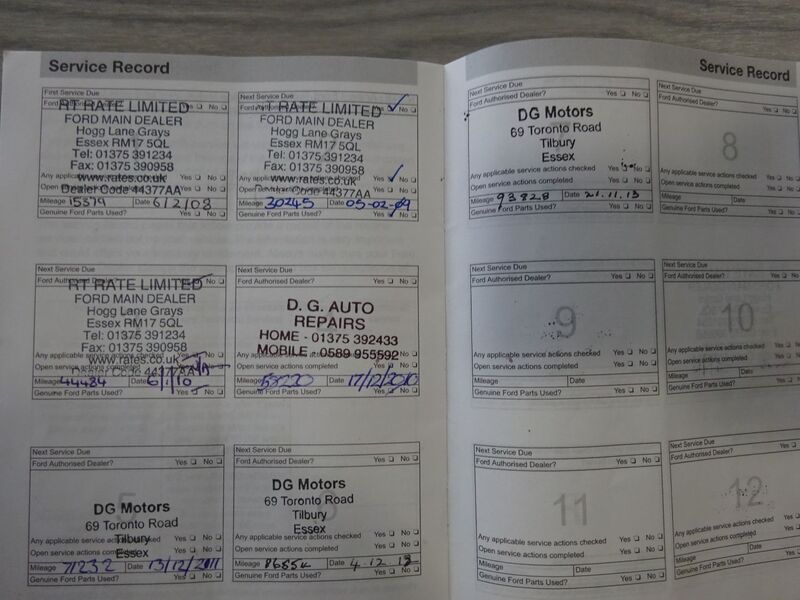 Service Record
First Service Due
Ford Authorised Dealer? Yes No
RT RATE LIMITED
FORD MAIN DEALER
Hogg Lane Grays
Essex RM17 5QL
Tel: 01375 391234
Fax: 01375 390958
www.rates.co.uk
Dealer Code 44377AA
Mileage 15379 Date 6/2/08
Genuine Ford Parts Used? Yes No
Next Service Due
RT RATE LIMITED
FORD MAIN DEALER
Hogg Lane Grays
Essex RM17 5QL
Tel: 01375 391234
Fax: 01375 390958
www.rates.co.uk
Dealer Code 44377AA
Mileage 30245 Date 05-02-09
Genuine Ford Parts Used? Yes No
Next Service Due
Ford Authorised Dealer? Yes No
RT RATE LIMITED
FORD MAIN DEALER
Hogg Lane Grays
Essex RM17 5QL
Tel: 01375 391234
Fax: 01375 390958
www.rates.co.uk
Any applicable service actions checked Yes No
Open service actions completed
Dealer Code 44377AA
Mileage 44484 Date 6/1/10
Genuine Ford Parts Used? Yes No
Next Service Due
Ford Authorised Dealer? Yes No
D. G. AUTO
REPAIRS
HOME - 01375 392433
MOBILE - 0589 955592
Any applicable service actions checked Yes No
Open service actions completed Yes No
Mileage Date 17/12/2010
Genuine Ford Parts Used? Yes No
Next Service Due
Ford Authorised Dealer? Yes No
DG Motors
69 Toronto Road
Tilbury
Essex
Any applicable service actions checked Yes No
Open service actions completed Yes No
Mileage 71232 Date 13/12/2011
Genuine Ford Parts Used? Yes No
Next Service Due
Ford Authorised Dealer? Yes No
DG Motors
69 Toronto Road
Tilbury
Essex
Any applicable service actions checked Yes No
Open service actions completed Yes No
Mileage Date 4.12.12
Genuine Ford Parts Used? Yes No
Service Record
Next Service Due
Ford Authorised Dealer? Yes No
DG Motors
69 Toronto Road
Tilbury
Essex
Any applicable service actions checked Yes No
Open service actions completed Yes No
Mileage 93828 Date 21.11.13
Genuine Ford Parts Used? Yes No
Next Service Due
Ford Authorised Dealer? Yes No
8
Any applicable service actions checked Yes No
Open service actions completed Yes No
Mileage Date
Genuine Ford Parts Used? Yes No
Next Service Due
Ford Authorised Dealer? Yes No
9
Any applicable service actions checked Yes No
Open service actions completed Yes No
Mileage Date
Genuine Ford Parts Used? Yes No
Next Service Due
Ford Authorised Dealer? Yes No
10
Any applicable service actions checked Yes No
Open service actions completed Yes No
Mileage Date
Genuine Ford Parts Used? Yes No
Next Service Due
Ford Authorised Dealer? Yes No
11
Any applicable service actions checked Yes No
Open service actions completed Yes No
Mileage Date
Genuine Ford Parts Used? Yes No
Next Service Due
Ford Authorised Dealer? Yes No
12
Any applicable service actions checked Yes
Open service actions completed Yes
Mileage Date
Genuine Ford Parts Used? Yes